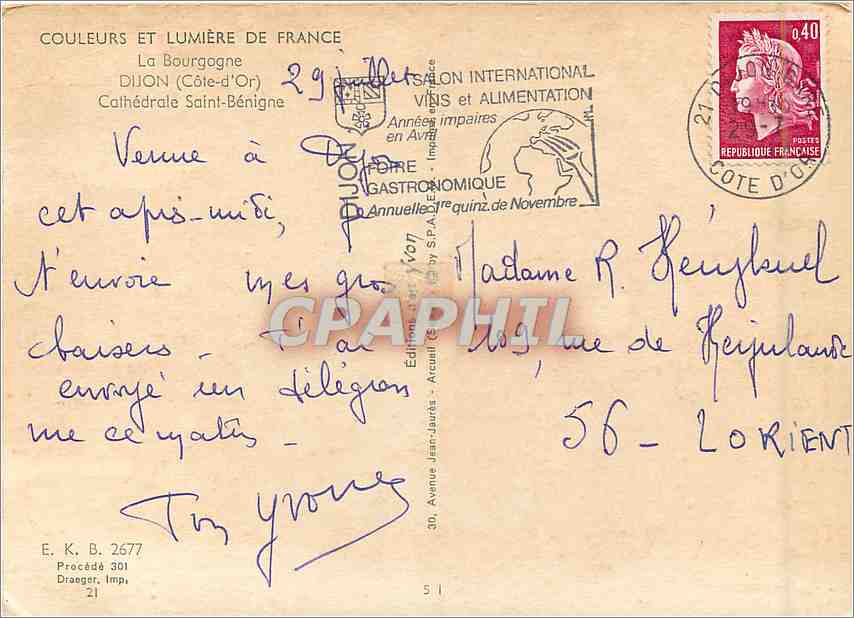 COULEURS ET LUMIÈRE DE FRANCE
La Bourgogne
DIJON (Côte-d'Or)
Cathédrale Saint-Bénigne
29 juillet
Venue à Dijon
cet après-midi, je
t'envoie mes gros
baisers - T'ai
envoyé un télégram
me ce matin -
Ton Yvonne
E. K. B. 2677
Procédé 301
Draeger, Imp.
21
DIJON
SALON INTERNATIONAL
VINS et ALIMENTATION
Années impaires
en Avril
FOIRE
GASTRONOMIQUE
Annuelle 1re quinz. de Novembre
0,40
POSTES
REPUBLIQUE FRANÇAISE
21 DIJON
COTE D'OR
Éditions d'art Yvon
30, Avenue Jean-Jaurès - Arcueil by S.P.A.D.E.M. - Imprimé en France
Madame R.
109, rue de
56 - LORIENT
5 1
CPAPHIL